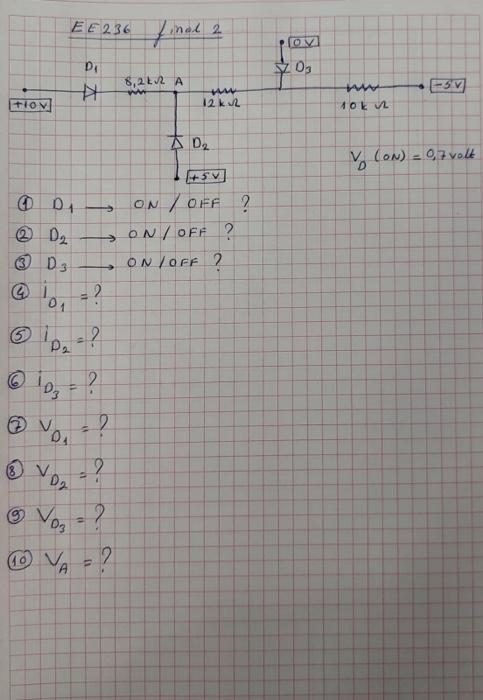 EE236 final 2
0V
D1 8,2kΩ A D3 -5V
+10V 12kΩ 10kΩ
D2
VD (ON) = 0,7volt
+5V
① D1 → ON / OFF ?
② D2 → ON / OFF ?
③ D3 → ON / OFF ?
④ iD1 = ?
⑤ iD2 = ?
⑥ iD3 = ?
⑦ VD1 = ?
⑧ VD2 = ?
⑨ VD3 = ?
⑩ VA = ?